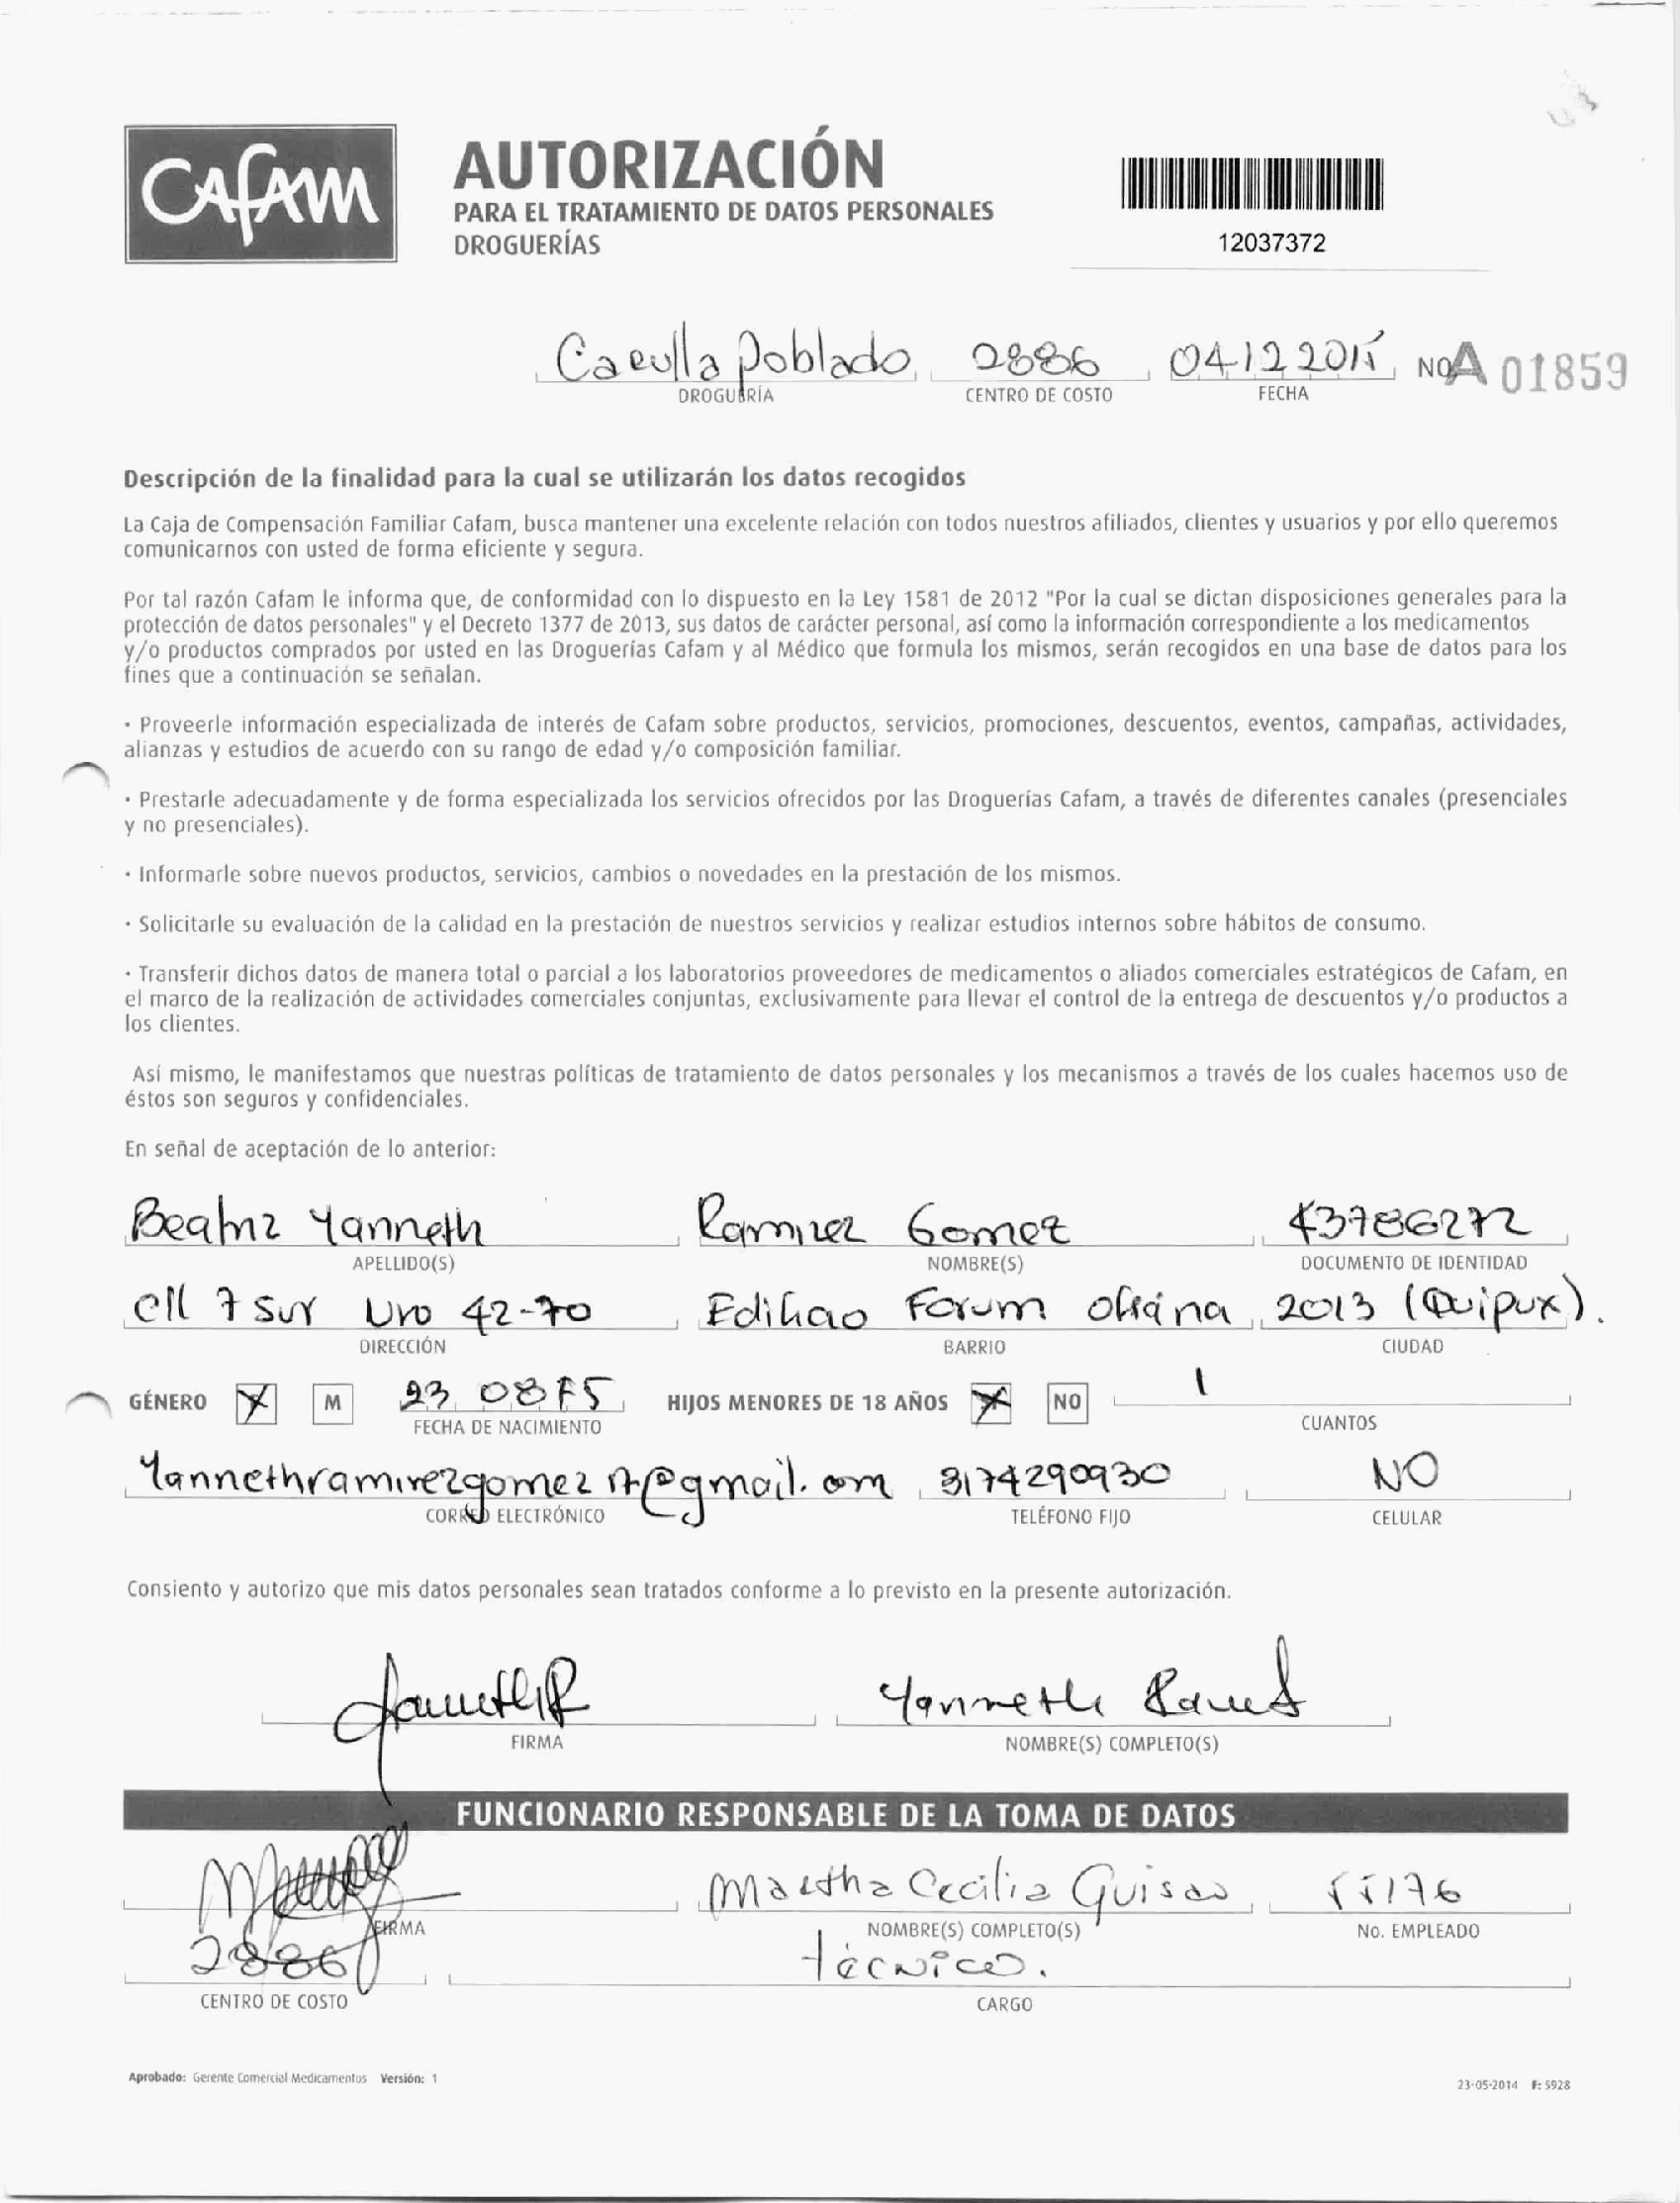 CAFAM
AUTORIZACIÓN
PARA EL TRATAMIENTO DE DATOS PERSONALES
DROGUERÍAS
12037372
Poblado 2886 04 12 2015 NoA 01859
DROGUERÍA CENTRO DE COSTO FECHA
Descripción de la finalidad para la cual se utilizarán los datos recogidos
La Caja de Compensación Familiar Cafam, busca mantener una excelente relación con todos nuestros afiliados, clientes y usuarios y por ello queremos
comunicarnos con usted de forma eficiente y segura.
Por tal razón Cafam le informa que, de conformidad con lo dispuesto en la Ley 1581 de 2012 "Por la cual se dictan disposiciones generales para la
protección de datos personales" y el Decreto 1377 de 2013, sus datos de carácter personal, así como la información correspondiente a los medicamentos
y/o productos comprados por usted en las Droguerías Cafam y al Médico que formula los mismos, serán recogidos en una base de datos para los
fines que a continuación se señalan.
· Proveerle información especializada de interés de Cafam sobre productos, servicios, promociones, descuentos, eventos, campañas, actividades,
alianzas y estudios de acuerdo con su rango de edad y/o composición familiar.
· Prestarle adecuadamente y de forma especializada los servicios ofrecidos por las Droguerías Cafam, a través de diferentes canales (presenciales
y no presenciales).
· Informarle sobre nuevos productos, servicios, cambios o novedades en la prestación de los mismos.
· Solicitarle su evaluación de la calidad en la prestación de nuestros servicios y realizar estudios internos sobre hábitos de consumo.
· Transferir dichos datos de manera total o parcial a los laboratorios proveedores de medicamentos o aliados comerciales estratégicos de Cafam, en
el marco de la realización de actividades comerciales conjuntas, exclusivamente para llevar el control de la entrega de descuentos y/o productos a
los clientes.
Así mismo, le manifestamos que nuestras políticas de tratamiento de datos personales y los mecanismos a través de los cuales hacemos uso de
éstos son seguros y confidenciales.
En señal de aceptación de lo anterior:
Beatriz Yanneth Ramirez Gomez 43786272
APELLIDO(S) NOMBRE(S) DOCUMENTO DE IDENTIDAD
Cll 7 sur Nro 42-70 Edificio Forum oficina 2013 (Quipux).
DIRECCIÓN BARRIO CIUDAD
GÉNERO X M 23 08 75 HIJOS MENORES DE 18 AÑOS X NO 1
FECHA DE NACIMIENTO CUANTOS
Yannethramirezgomez17@gmail.com 3174290930 NO
CORREO ELECTRÓNICO TELÉFONO FIJO CELULAR
Consiento y autorizo que mis datos personales sean tratados conforme a lo previsto en la presente autorización.
Yanneth
FIRMA NOMBRE(S) COMPLETO(S)
FUNCIONARIO RESPONSABLE DE LA TOMA DE DATOS
Martha Cecilia Guisao 55176
FIRMA NOMBRE(S) COMPLETO(S) No. EMPLEADO
2886 técnico.
CENTRO DE COSTO CARGO
Aprobado: Gerente Comercial Medicamentos Versión: 1
23-05-2014 F: 5928